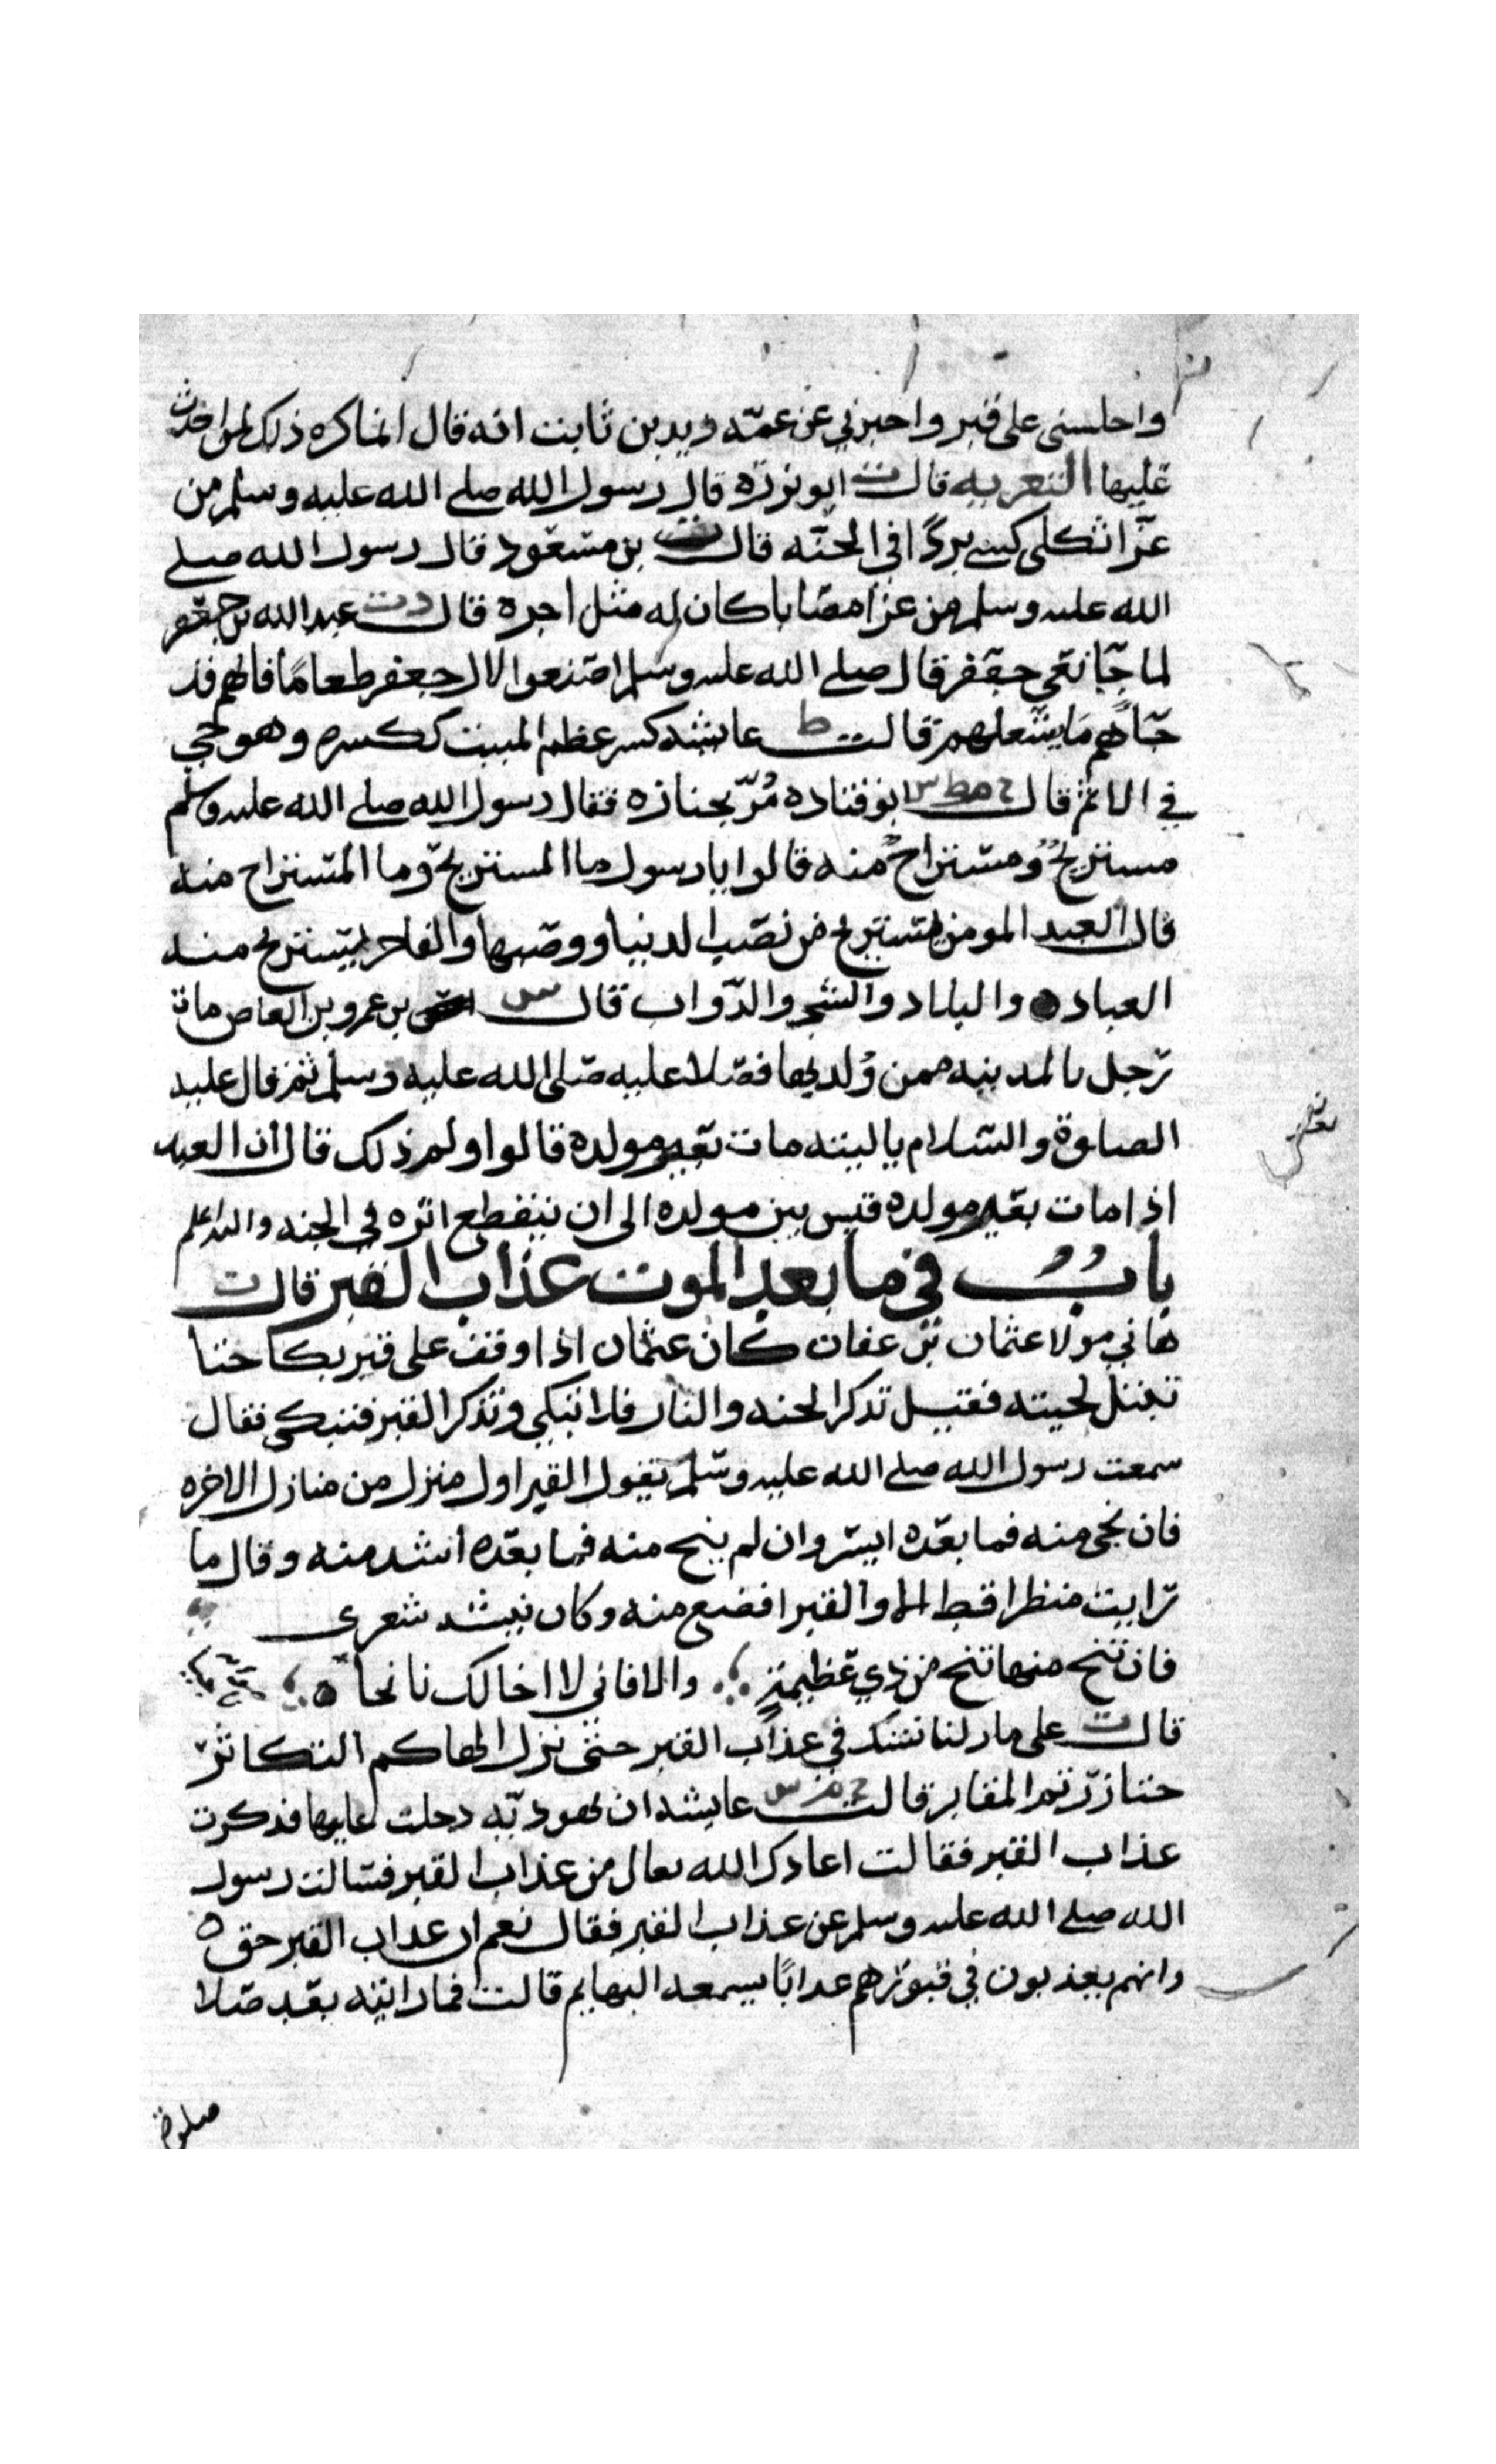 واجلسني على قبر واخبرني عن عمه يزيد بن ثابت انه قال انما كره ذلك لمن احدث
عليها التعزيه قال ت ابو برزه قال رسول الله صلى الله عليه وسلم من
عزا ثكلى كسي بردًا في الجنه قال ت بن مسعود قال رسول الله صلى
الله عليه وسلم من عزا مصابا كان له مثل اجره قال د ت عبد الله بن جعفر
لما جا نعي جعفر قال صلى الله عليه وسلم اصنعوا لال جعفر طعامًا فانهم قد
جاهم ما يشغلهم قالت ط عايشه كسر عظم الميت ككسره وهو حي
في الاثم قال خ م ط س ابو قتاده مُرّ بجنازه فقال رسول الله صلى الله عليه وسلم
مستريحٌ ومستراحٌ منه قالوا يا رسول ما المستريح وما المستراح منه
قال العبد المومن يستريح من نصب الدنيا ووصبها والفاجر يستريح منه
العباد والبلاد والشجر والدواب قال س بن عمرو بن العاص مات
رجل بالمدينه ممن وُلد بها فصلا عليه صلى الله عليه وسلم ثم قال عليه
الصلوة والسلام ياليته مات بغير مولده قالوا ولم ذلك قال ان العبد
اذا مات بغير مولده قيس بين مولده الى ان ينقطع اثره في الجنه والله اعلم
بابٌ في ما بعد الموت عذاب القبر قال ت
هاني مولا عثمان بن عفان كان عثمان اذا وقف على قبر بكا حتا
تبتل لحيته فقيل تذكر الجنه والنار فلا تبكي وتذكر القبر فتبكي فقال
سمعت رسول الله صلى الله عليه وسلم يقول القبر اول منزل من منازل الاخره
فان نجى منه فما بعده ايسر وان لم ينج منه فما بعده اشد منه وقال ما
رايت منظرا قط الا والقبر افضع منه وكان ينشد شعرى
فان تنج منها تنج من ذي عظيمة والا فاني لا اخالك ناجا
قال ت على مازلنا نشك في عذاب القبر حتى نزل الهاكم التكاثر
حتا زرتم المقابر قالت خ م س عايشه ان يهوديّه دخلت عليها فذكرت
عذاب القبر فقالت اعاذك الله تعالى من عذاب القبر فسالت رسول
الله صلى الله عليه وسلم عن عذاب القبر فقال نعم ان عذاب القبر حق
وانهم يعذبون في قبورهم عذابًا يسمعه البهايم قالت فما رايته بعد صلا
صلوة